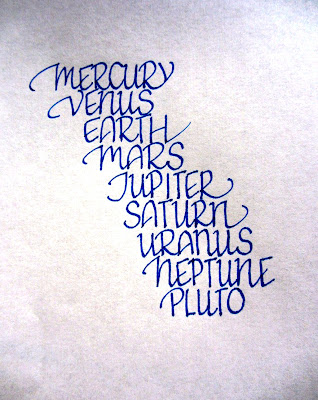 MERCURY
VENUS
EARTH
MARS
JUPITER
SATURN
URANUS
NEPTUNE
PLUTO